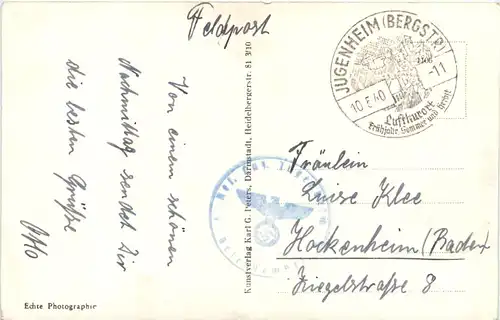 Feldpost
Von einem schönen
Nachmittag sendet Dir
die besten Grüße
Otto
Echte Photographie
Kunstverlag Karl G. Peters, Darmstadt, Heidelbergerstr. 81 3/10
JUGENHEIM (BERGSTR)
-11
Luftkurort
Frühjahr Sommer und Herbst
Fräulein
Luise Klee
Hockenheim (Baden)
Ziegelstraße 8